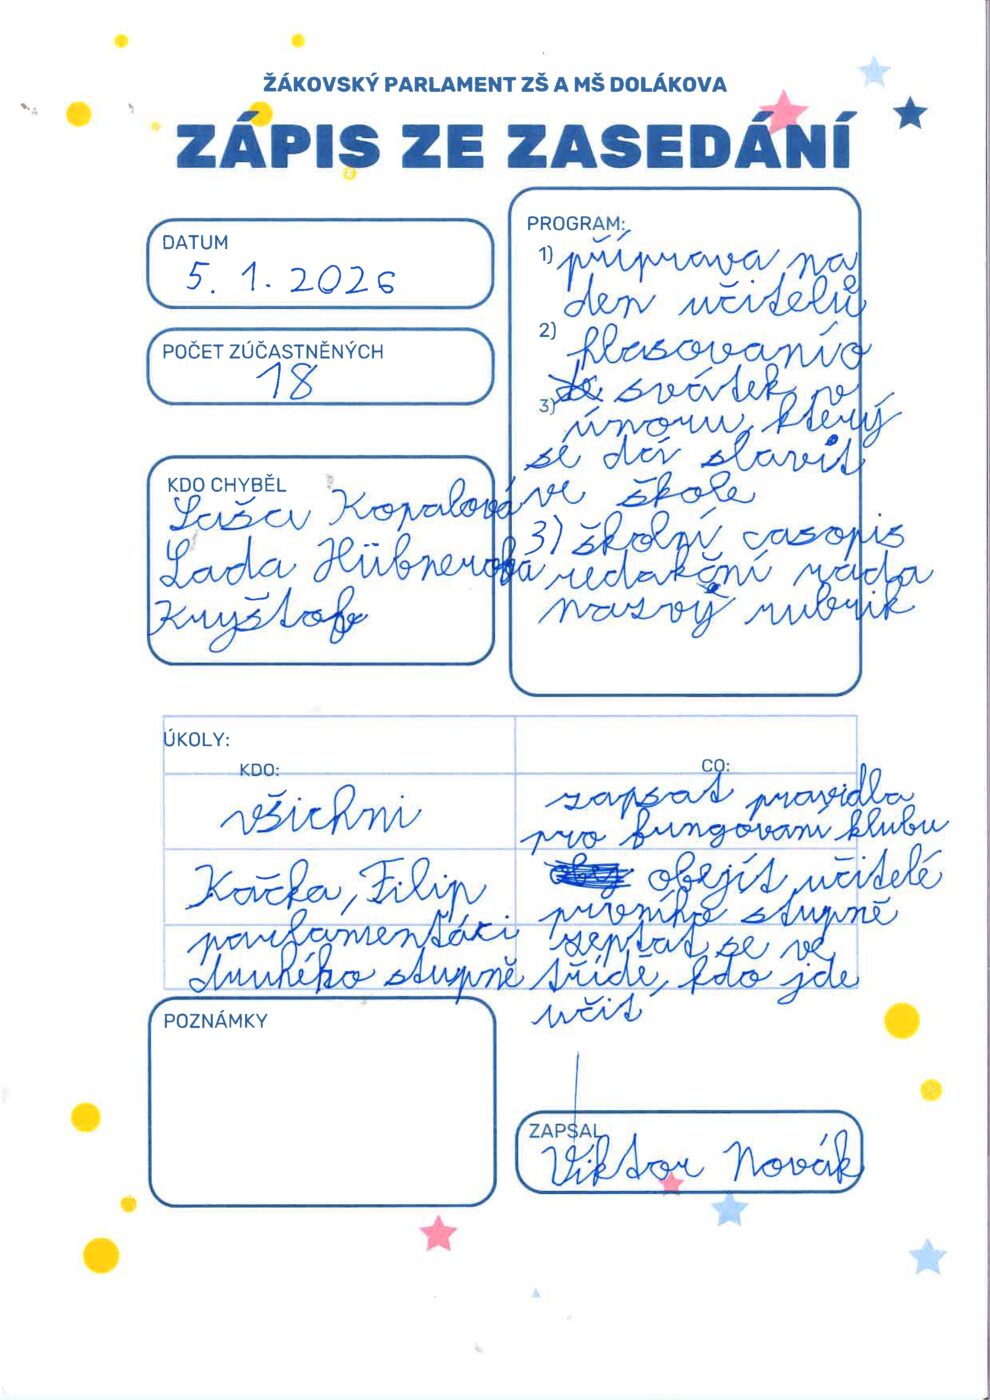 ŽÁKOVSKÝ PARLAMENT ZŠ A MŠ DOLÁKOVA
ZÁPIS ZE ZASEDÁNÍ
DATUM
5. 1. 2026
POČET ZÚČASTNĚNÝCH
18
KDO CHYBĚL
Saša Kopalová
Lada Hübnerová
Kryštof
PROGRAM:
1) příprava na
den učitelů
2) hlasování o
svátek v
3) únoru, který
se dá slavit
ve škole
3) školní casopis
redakční rada
nazvý rubrik
ÚKOLY:
KDO:
CO:
všichni
zapsat pravidla
pro fungování klubu
Kačka, Filip
obejít učitelé
prvního stupně
parlamentáci
druhého stupně
zeptat se ve
třídě, kdo jde
učit
POZNÁMKY
ZAPSAL
Viktor Novák